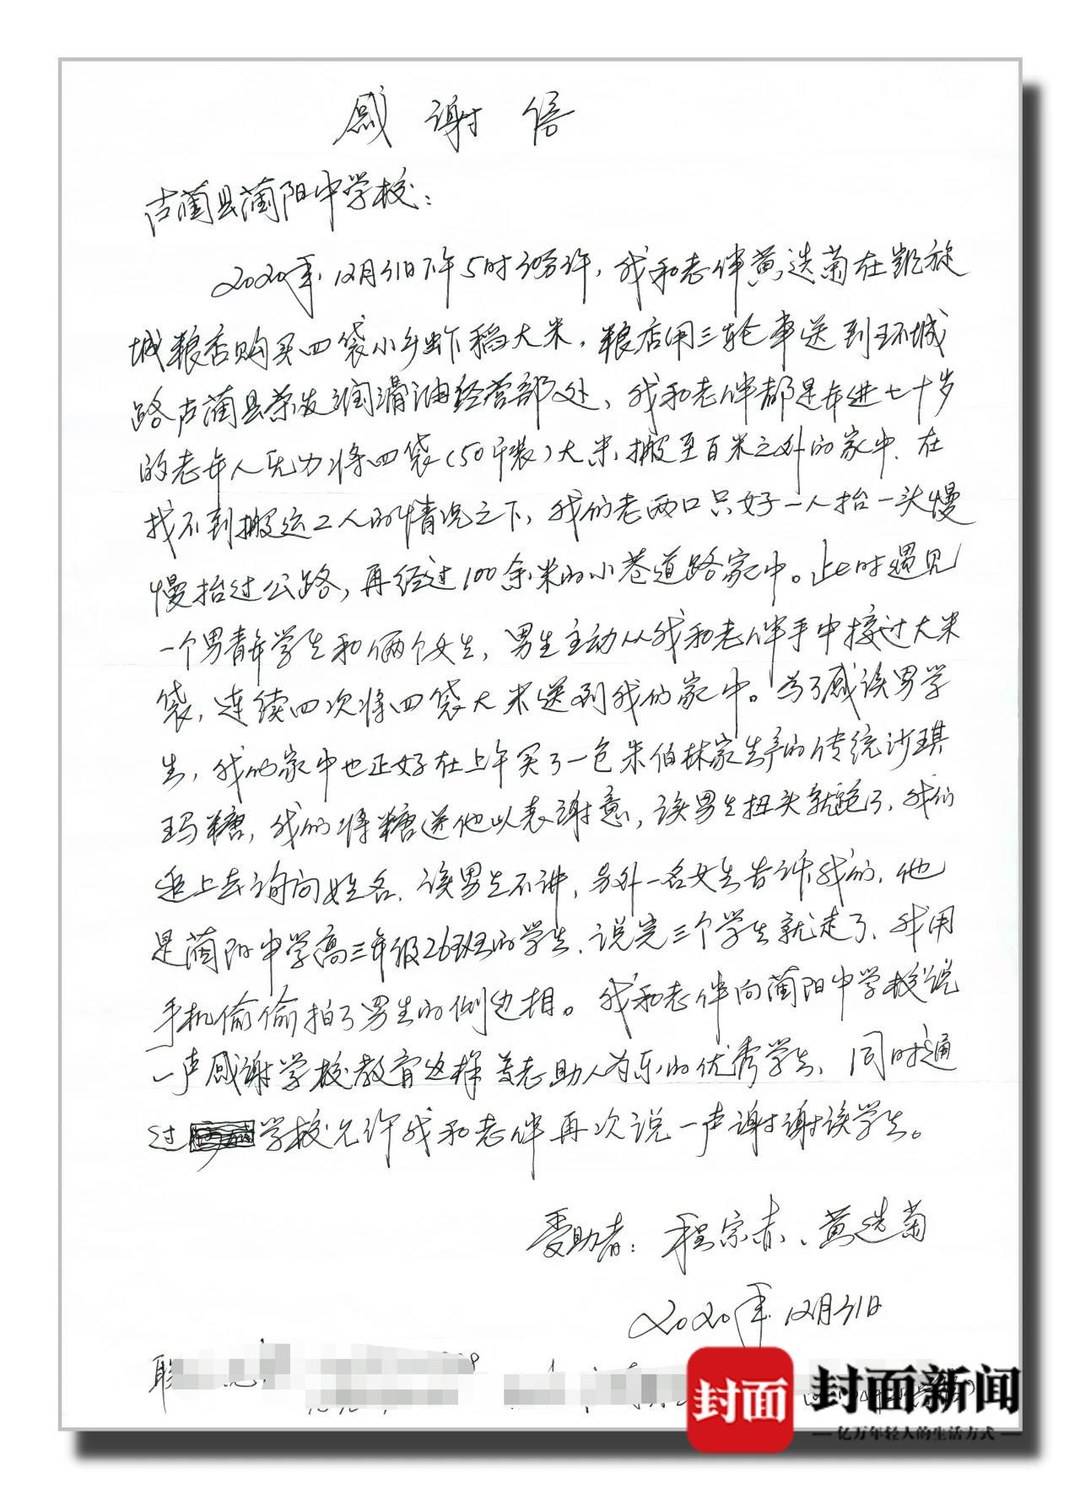 感谢信
古蔺县蔺阳中学校：
2020年12月31日下午5时30分许，我和老伴黄选菊在凯旋
城粮店购买四袋小乡虾稻大米，粮店用三轮车送到环城
路古蔺县荣发润滑油经营部处，我和老伴都是年进七十岁
的老年人无力将四袋（50斤装）大米搬至百米之外的家中．在
找不到搬运工人的情况之下，我们老两口只好一人抬一头慢
慢抬过公路，再经过100余米的小巷道路家中。此时遇见
一个男青年学生和俩个女生，男生主动从我和老伴手中接过大米
袋，连续四次将四袋大米送到我们家中。为了感该男学
生，我们家中也正好在上午买了一包朱伯林家生产的传统沙琪
玛糖，我们将糖送他以表谢意，该男生扭头就跑了，我们
追上去询问姓名．该男生不讲，另外一名女生告诉我们，他
是蔺阳中学高三年级26班的学生．说完三个学生就走了．我用
手机偷偷拍了男生的侧边相。我和老伴向蔺阳中学校说
一声感谢学校教育这样尊老助人为乐的优秀学生，同时通
过学校允许我和老伴再次说一声谢谢该学生。
受助者：程宗赤、黄选菊
2020年12月31日
联
封面
封面新闻
—亿万年轻人的生活方式—